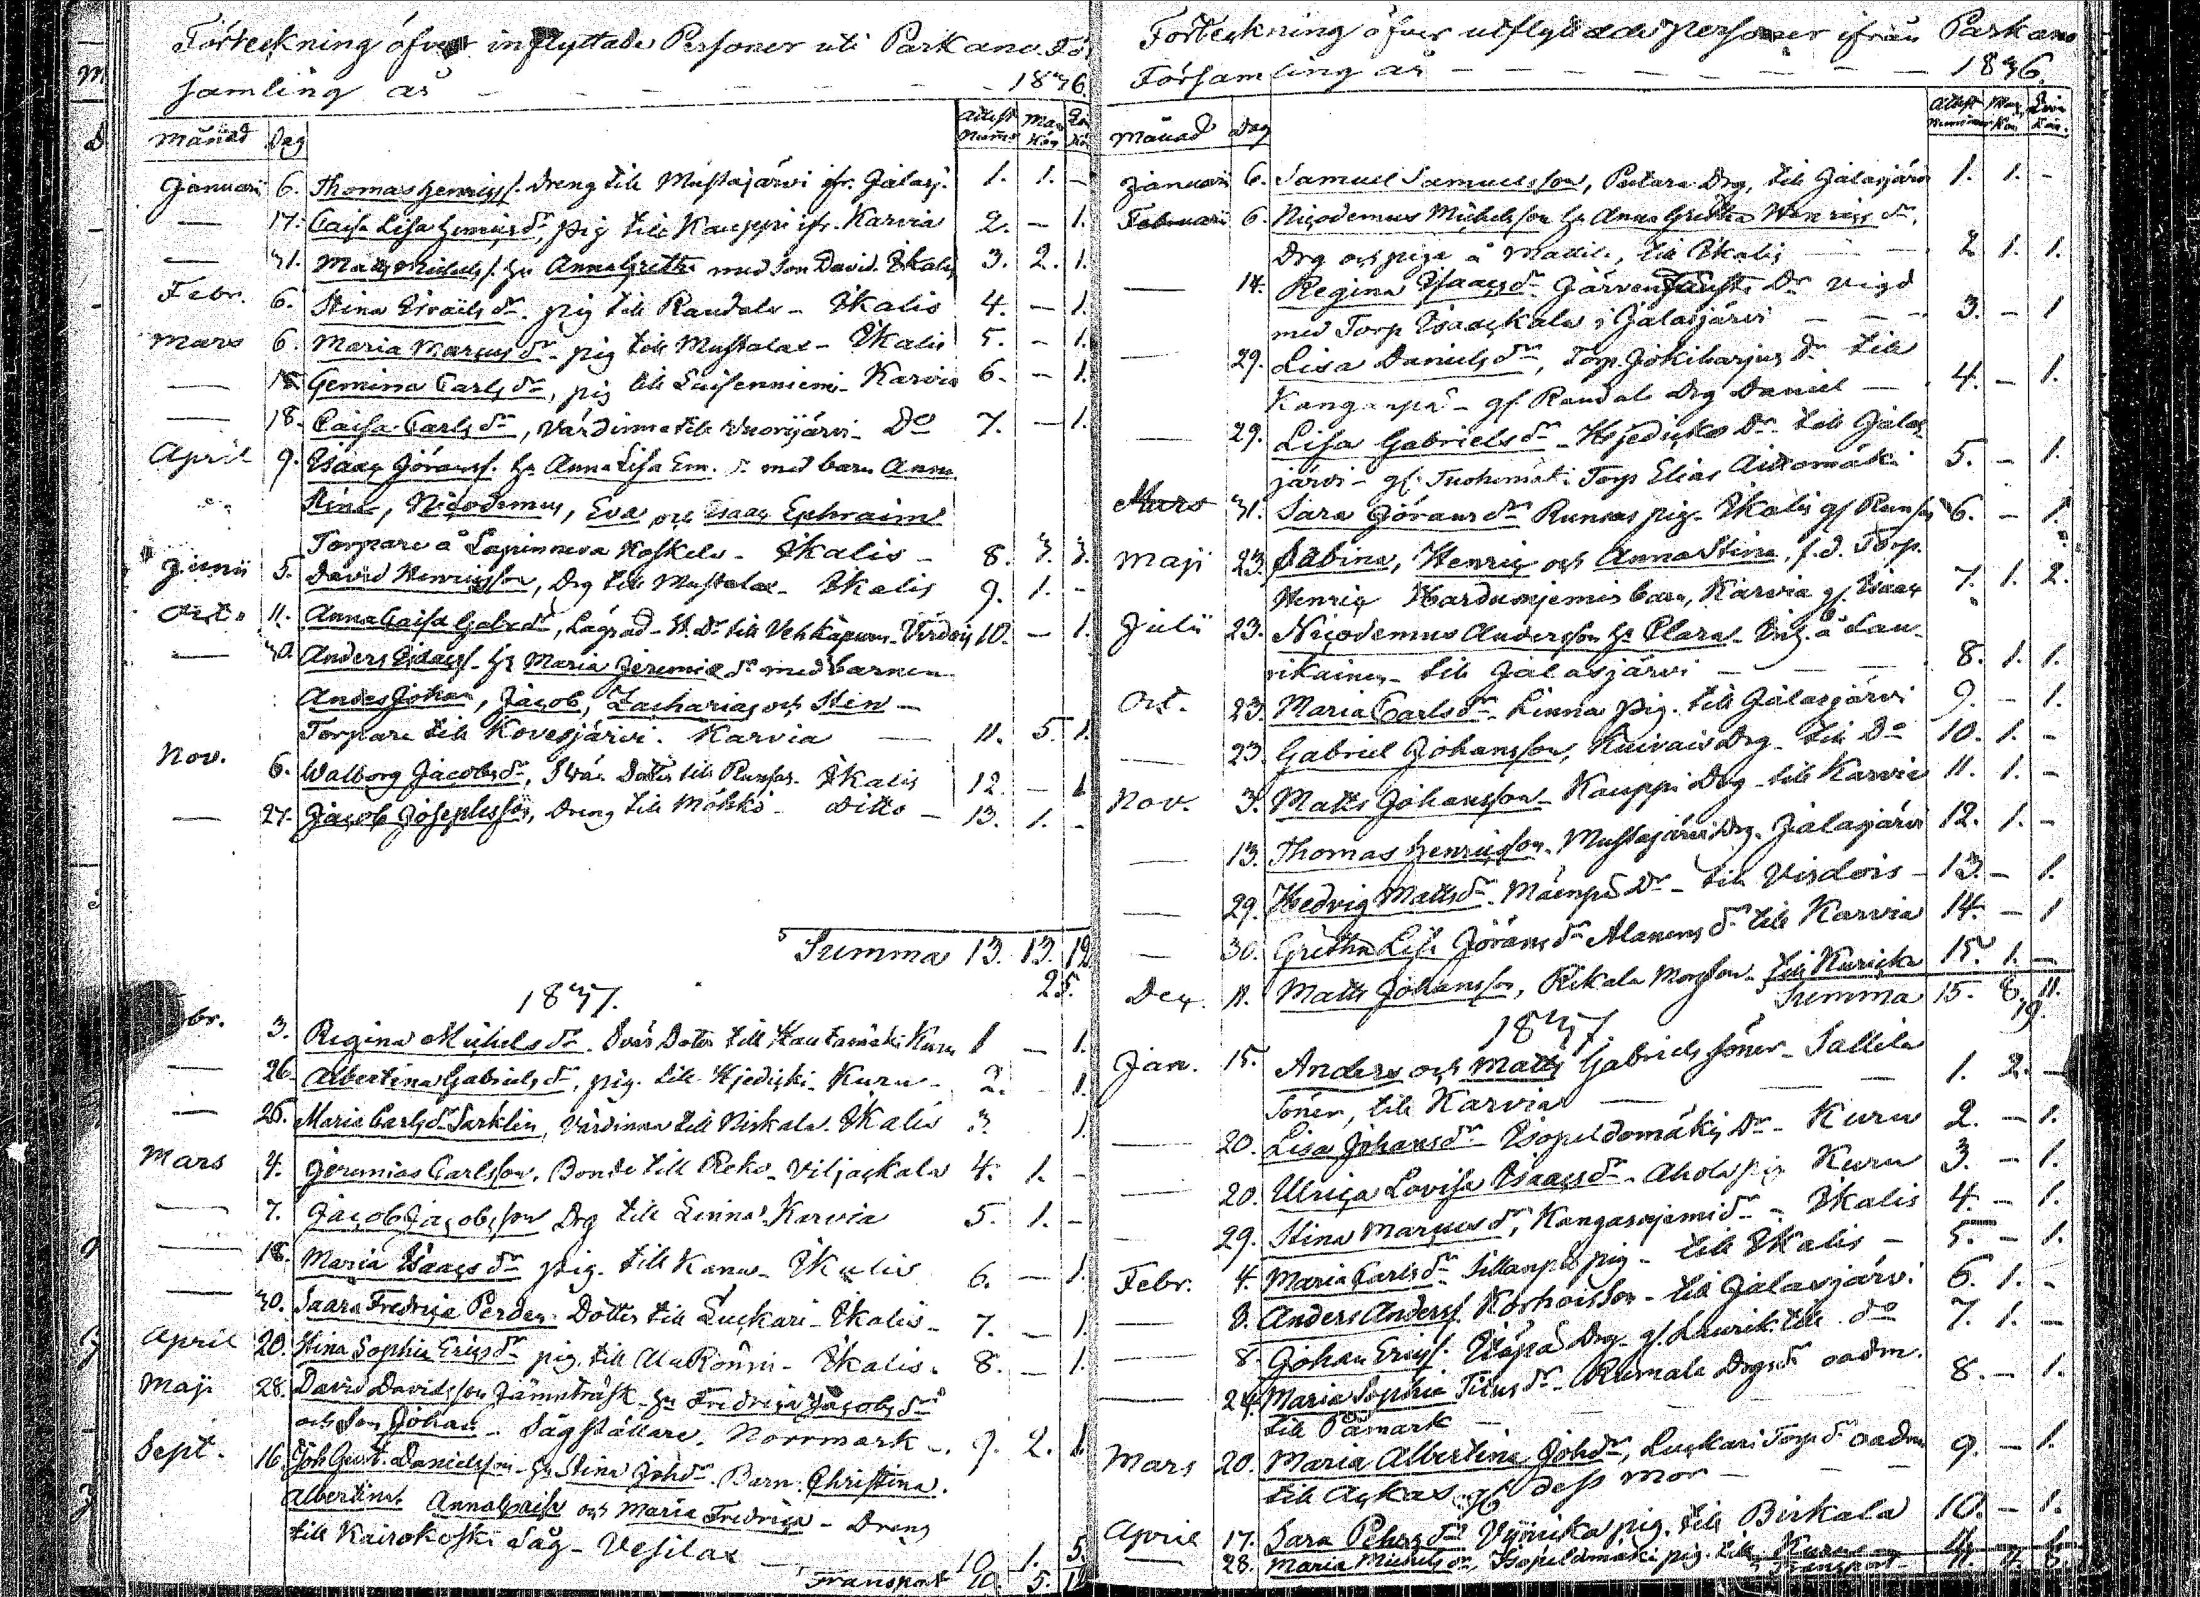 Förteckning öfver inflyttade Personer uti Parkano För
samling år - - - - - 1836.
Månad Dag Attest Numer Man Kön Qvin Kön
Januari 6. Thomas Henricss. Dreng till Mustajärvi ifr. Jalasj. 1. 1. -
— 17. Caisa Lisa Henricsdr, pig till Kauppi ifr. Karvia 2. - 1.
— 31. Matts Michelss. Hu Anna Gretha med son David. Ikalis 3. 2. 1.
Febr. 6. Stina Israelsdr. pig till Raudala - Ikalis 4. - 1.
Mars 6. Maria Marcusdr - pig till Mustalax - Ikalis 5. - 1.
— Gemina Carlsdr, pig till Laisenniemi - Karvia 6. - 1.
— 18. Caisa Carlsdr, Värdinna till Vuorijärvi - Do 7. - 1.
April 9. Isaac Jöranss. Hu Anna Lisa Em. dr med barn Anna
Stina, Nicodemus, Eva och Isaac Ephraim
Torpare å Lapinneva Koskela - Ikalis - 8. 3. 3.
Junii 5. David Henricsson, Drg till Mustalax - Ikalis 9. 1. -
Octo 11. Anna Caisa Gabr.dr, till Vehkapuro - Virdois 10. - 1.
— 30. Anders Isaacss. Hu Maria Jeremiædr med barnen
Anders Johan, Jacob, Zacharias och Stina -
Torpare till Kovesjärvi. Karvia — 11. 5. 1.
Nov. 6. Walborg Jacobsdr, Svär Dotter till Runsas. Ikalis 12. - 1.
— 27. Jacob Josephsson, Dreng till Möhkö - ditto - 13. 1. -
Summa 13. 13. 12.
25.
1837.
br. 3. Regina Michelsdr. Svär Doter till Kautamäki Kuru 1 - 1.
— 26. Albertina Gabrielsdr, pig. till Hjedicki - Kuru - 2. 1.
— 26. Maria Carlsdr Sarklin, Värdinna till Niskala. Ikalis 3. 1.
Mars 4. Jeremias Carlsson. Bonde till Peko - Viljackala 4. 1. -
— 7. Jacob Jacobsson Drg till Linna. Karvia 5. 1. -
— 18. Maria Isaacsdr pig. till Kanu - Ikalis 6. - 1.
— 30. Saara Fredrica Perden. Dotter till Luckari - Ikalis - 7. - 1.
April 20. Stina Sophia Ericsdr pig. till Ala Rönni - Ikalis. 8. - 1.
Maji 28. David Davidsson Jämnträsk - Hu Fredrica Jacobsdr
och son Johan - Sågställare. Norrmark - 9. 2. 1.
Sept. 16. Joh Gust. Danielsson - Hu Stina Johdr. Barn. Christina.
Albertina. Anna Caisa och Maria Fredrica - Dreng
till Kairokoski Såg - Vesilax — 10. 1. 5.
Transport 10. 5. 12
Förteckning öfver utflyttade personer ifrån Parkano
Församling år - - - - - 1836.
Månad Dag Attest Numer Man Kön Qvin Kön.
Januari 6. Samuel Samuelsson, Drg, till Jalasjärvi 1. 1. -
Februari 6. Nicodemus Michelsson Hu Anna Gretha Henricsdr,
Drg och piga å Mattila, till Ikalis — 2. 1. 1.
— 14. Regina Isaacsdr Järven Dr vigd
med Torp Isaackala i Jalasjärvi — 3. - 1
— 29. Lisa Danielsdr, Torp. Jokiharjus dr till
Kanganpä - gf Raudala Drg Daniel — 4. - 1.
— 29. Lisa Gabrielsdr - Hjedicko Dr. till Jalas
järvi - gf. Tuohimäki Torp Elias Aittomäki 5. - 1.
Mars 31. Sara Jöransdr Runsas pig - Ikalis gf Runsas 6. - 1.
Maji 23. Sabina, Henric och Anna Stina, f.d. Torp.
Henric Kardusniemis barn, Karvia gf. Isaac 7. 1. 2.
Julii 23. Nicodemus Andersson Hu Clara - Inh. å Lau-
rikainen - till Jalasjärvi — 8. 1. 1.
Oct. 23. Maria Carlsdr. Linna pig. till Jalasjärvi 9. - 1.
— 23. Gabriel Johansson, Kuivais Drg - till Do 10. 1. -
Nov. 3. Matts Johansson - Kauppi Drg - till Karvia 11. 1. -
— 13. Thomas Henricsson. Mustajärvi Drg. Jalasjärvi 12. 1. -
— 29. Hedvig Mattsdr. Mäenpä Dr - till Virdois - 13. - 1.
— 30. Gretha Lisa Jöransdr Alanens dr till Karvia 14. - 1
Dec. 11. Matts Johansson, Rikala - till Kuricka 15. 1. -
Summa 15. 8. 11.
19.
1837.
Jan. 15. Anders och Matts Gabrielssöner - Sallila
Söner, till Karvia — 1. 2. -
— 20. Lisa Johansdr - Isopeldomäkis Dr - Kuru 2. - 1.
— 20. Ulrica Lovisa Isaacsdr - Ahola pig Kuru 3. - 1.
— 29. Stina Marcusdr, Kangasniemi dr - Ikalis 4. - 1.
Febr. 4. Maria Carlsdr Sillanpä pig - till Ikalis - 5. - 1.
— 8. Anders Anderss. Korhoisson - till Jalasjärvi 6. 1. -
— 8. Johan Ericss. Drg. gf. Laurik. till do 7. 1. -
— 24. Maria Sophia Titusdr - Rumala Drgs dr oadm.
till Påmark — 8. - 1.
Mars 20. Maria Albertina Johdr, Luckari Torp dr oadm
till Ackas gf dess mor — 9. - 1.
April 17. Sara Pehrsdr pig. till Birkala 10. - 1.
— 28. Maria Michelsdr, Isopeldmäki pig. till Kuru 11. - 1.
Transport 11. 4. 8.